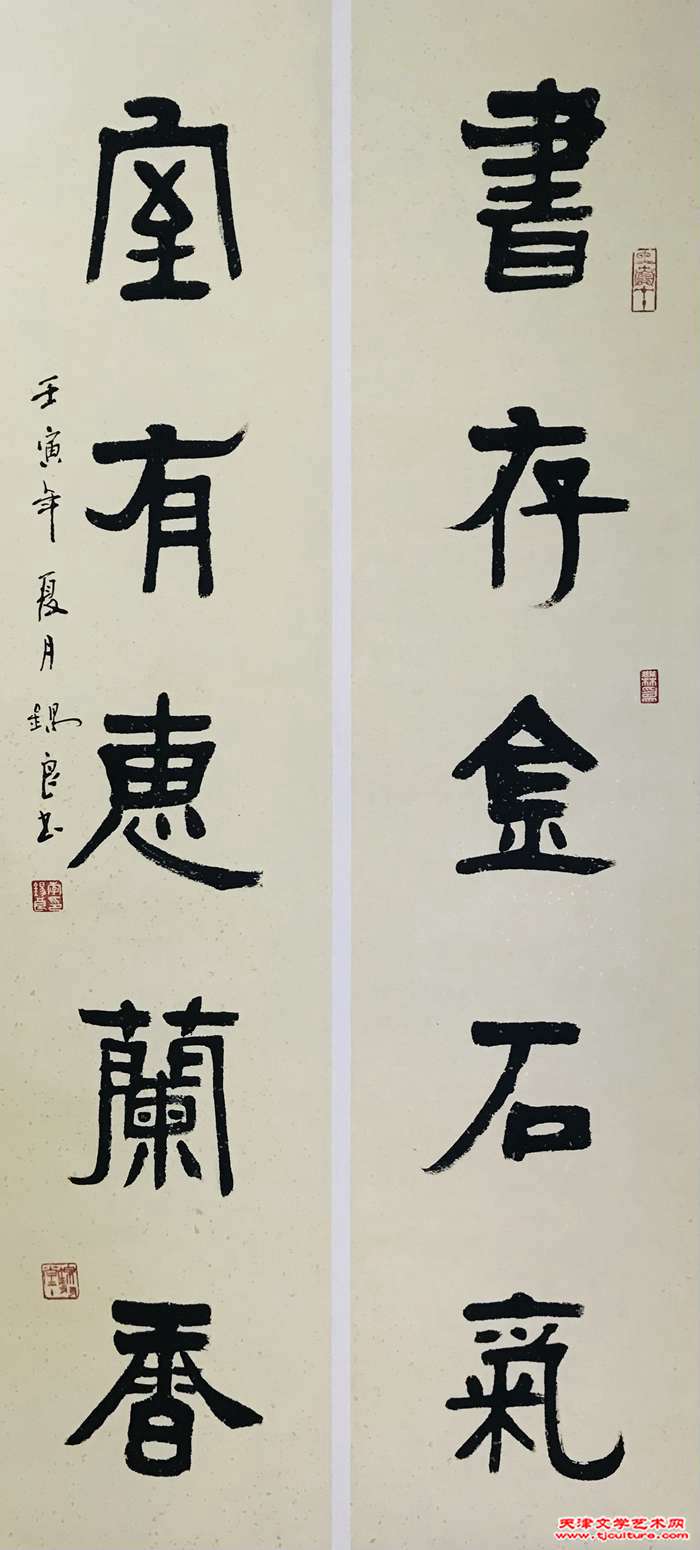 書存金石氣
室有恵蘭香
壬寅年夏月錫良书
天津文学艺术网
www.tjculture.com